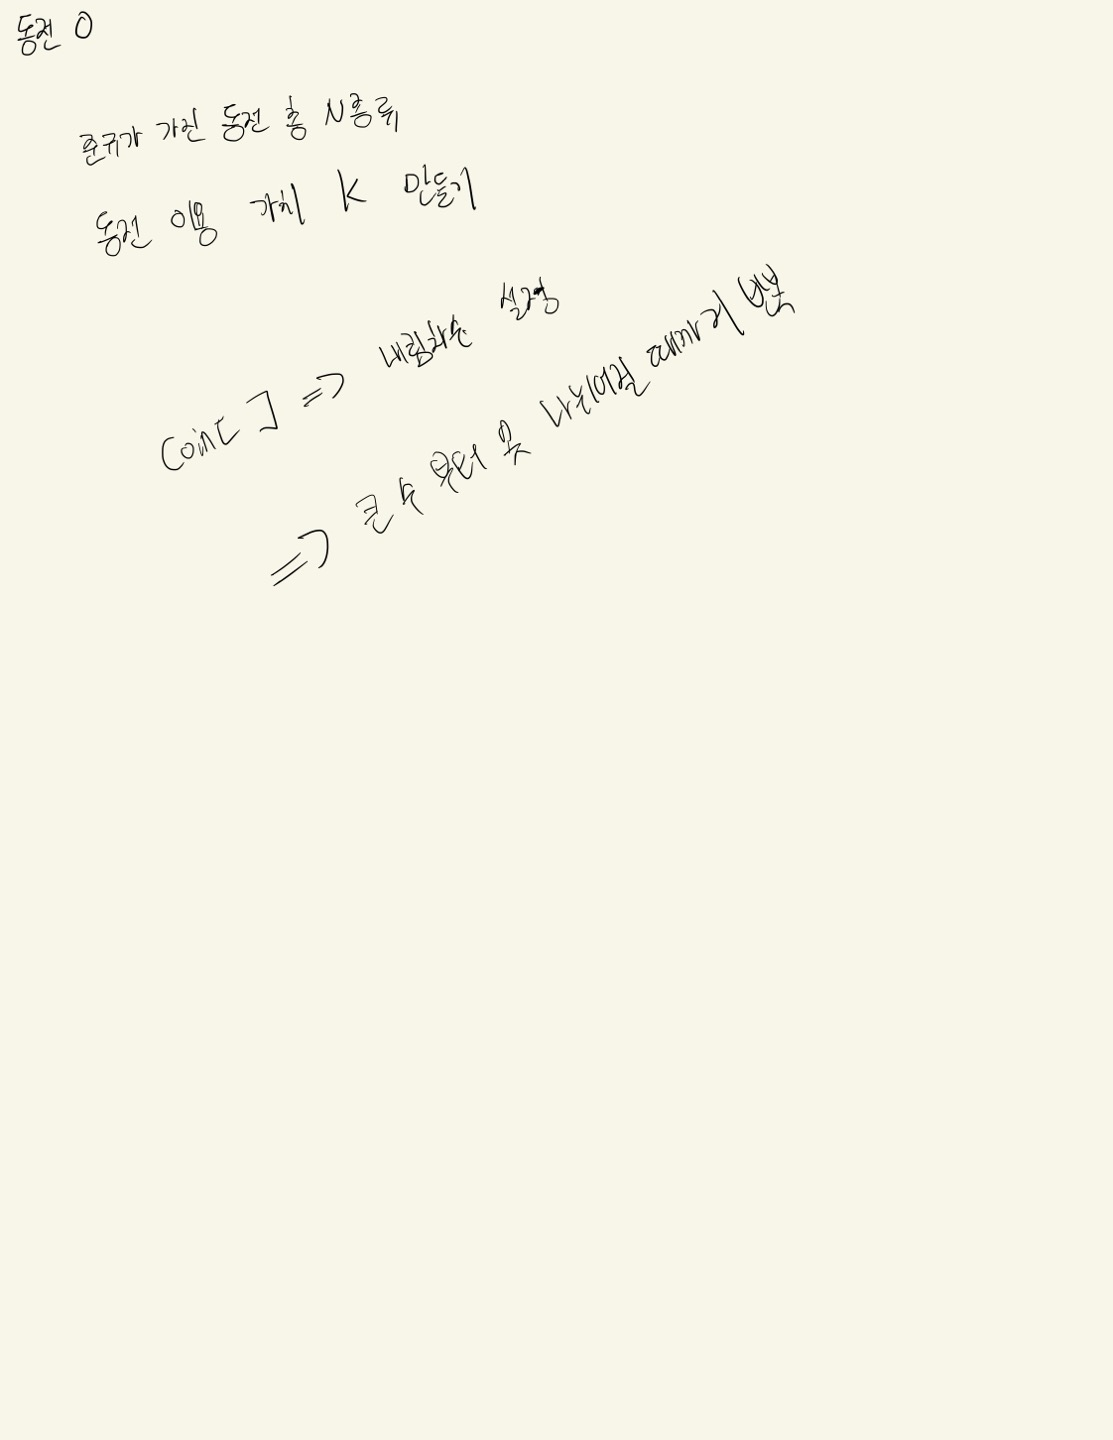 동전 0
준규가 가진 동전 총 N종류
동전 이용 가치 K 만들기
coin[ ] => 내림차순 설정
=> 큰 수 부터 못 나뉘어질 때까지 반복